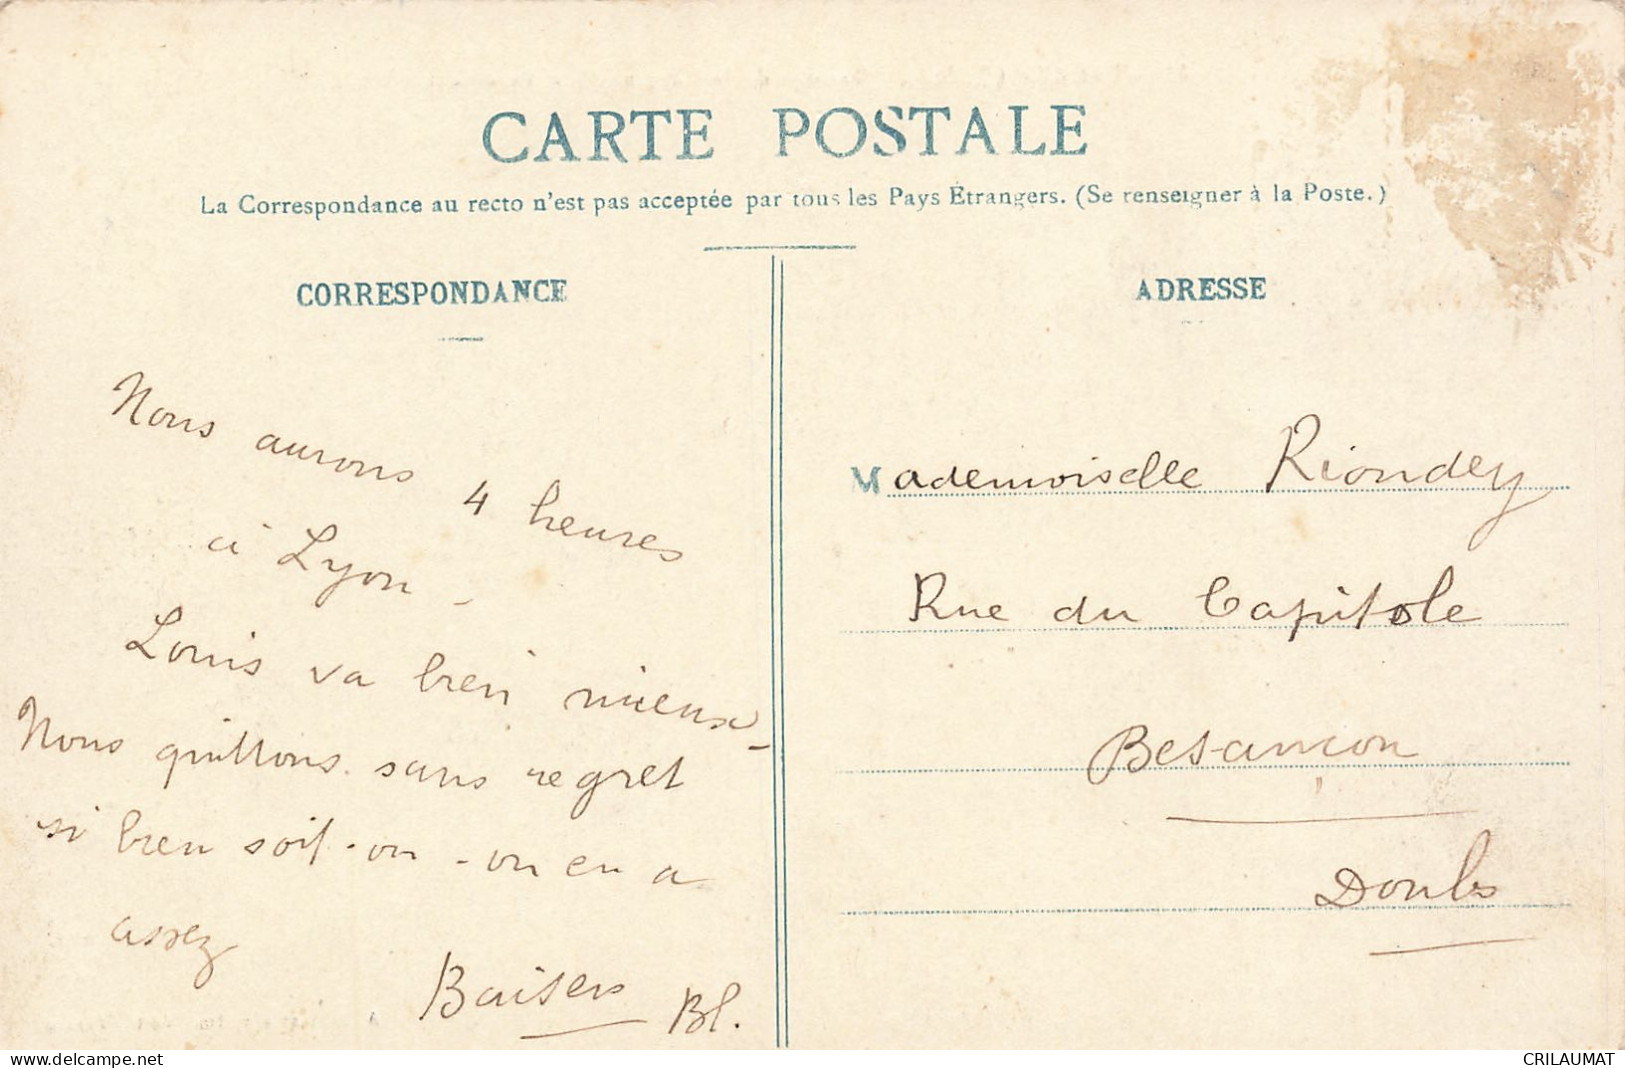 CARTE POSTALE
La Correspondance au recto n'est pas acceptée par tous les Pays Étrangers. (Se renseigner à la Poste.)
CORRESPONDANCE
Nous aurons 4 heures
à Lyon -
Louis va bien mieux -
Nous quittons sans regret
si bien soit-on - on en a
assez
Baisers Bl.
ADRESSE
Mademoiselle Riondey
Rue du Capitole
Besançon
Doubs
www.delcampe.net
CRILAUMAT